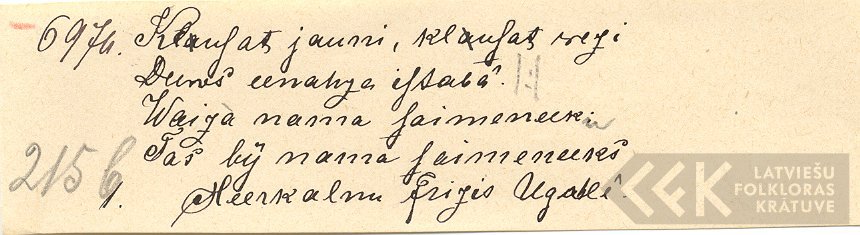 6974. Klausat jauni, klausat wezi
Deews eenahza istabâ.
Waizà nama saimeneek
Tas bij nama saimeneeks
215 b
1. Meerkalnu Frizis Ugalê.
LATVIEŠU
FOLKLORAS
KRĀTUVE